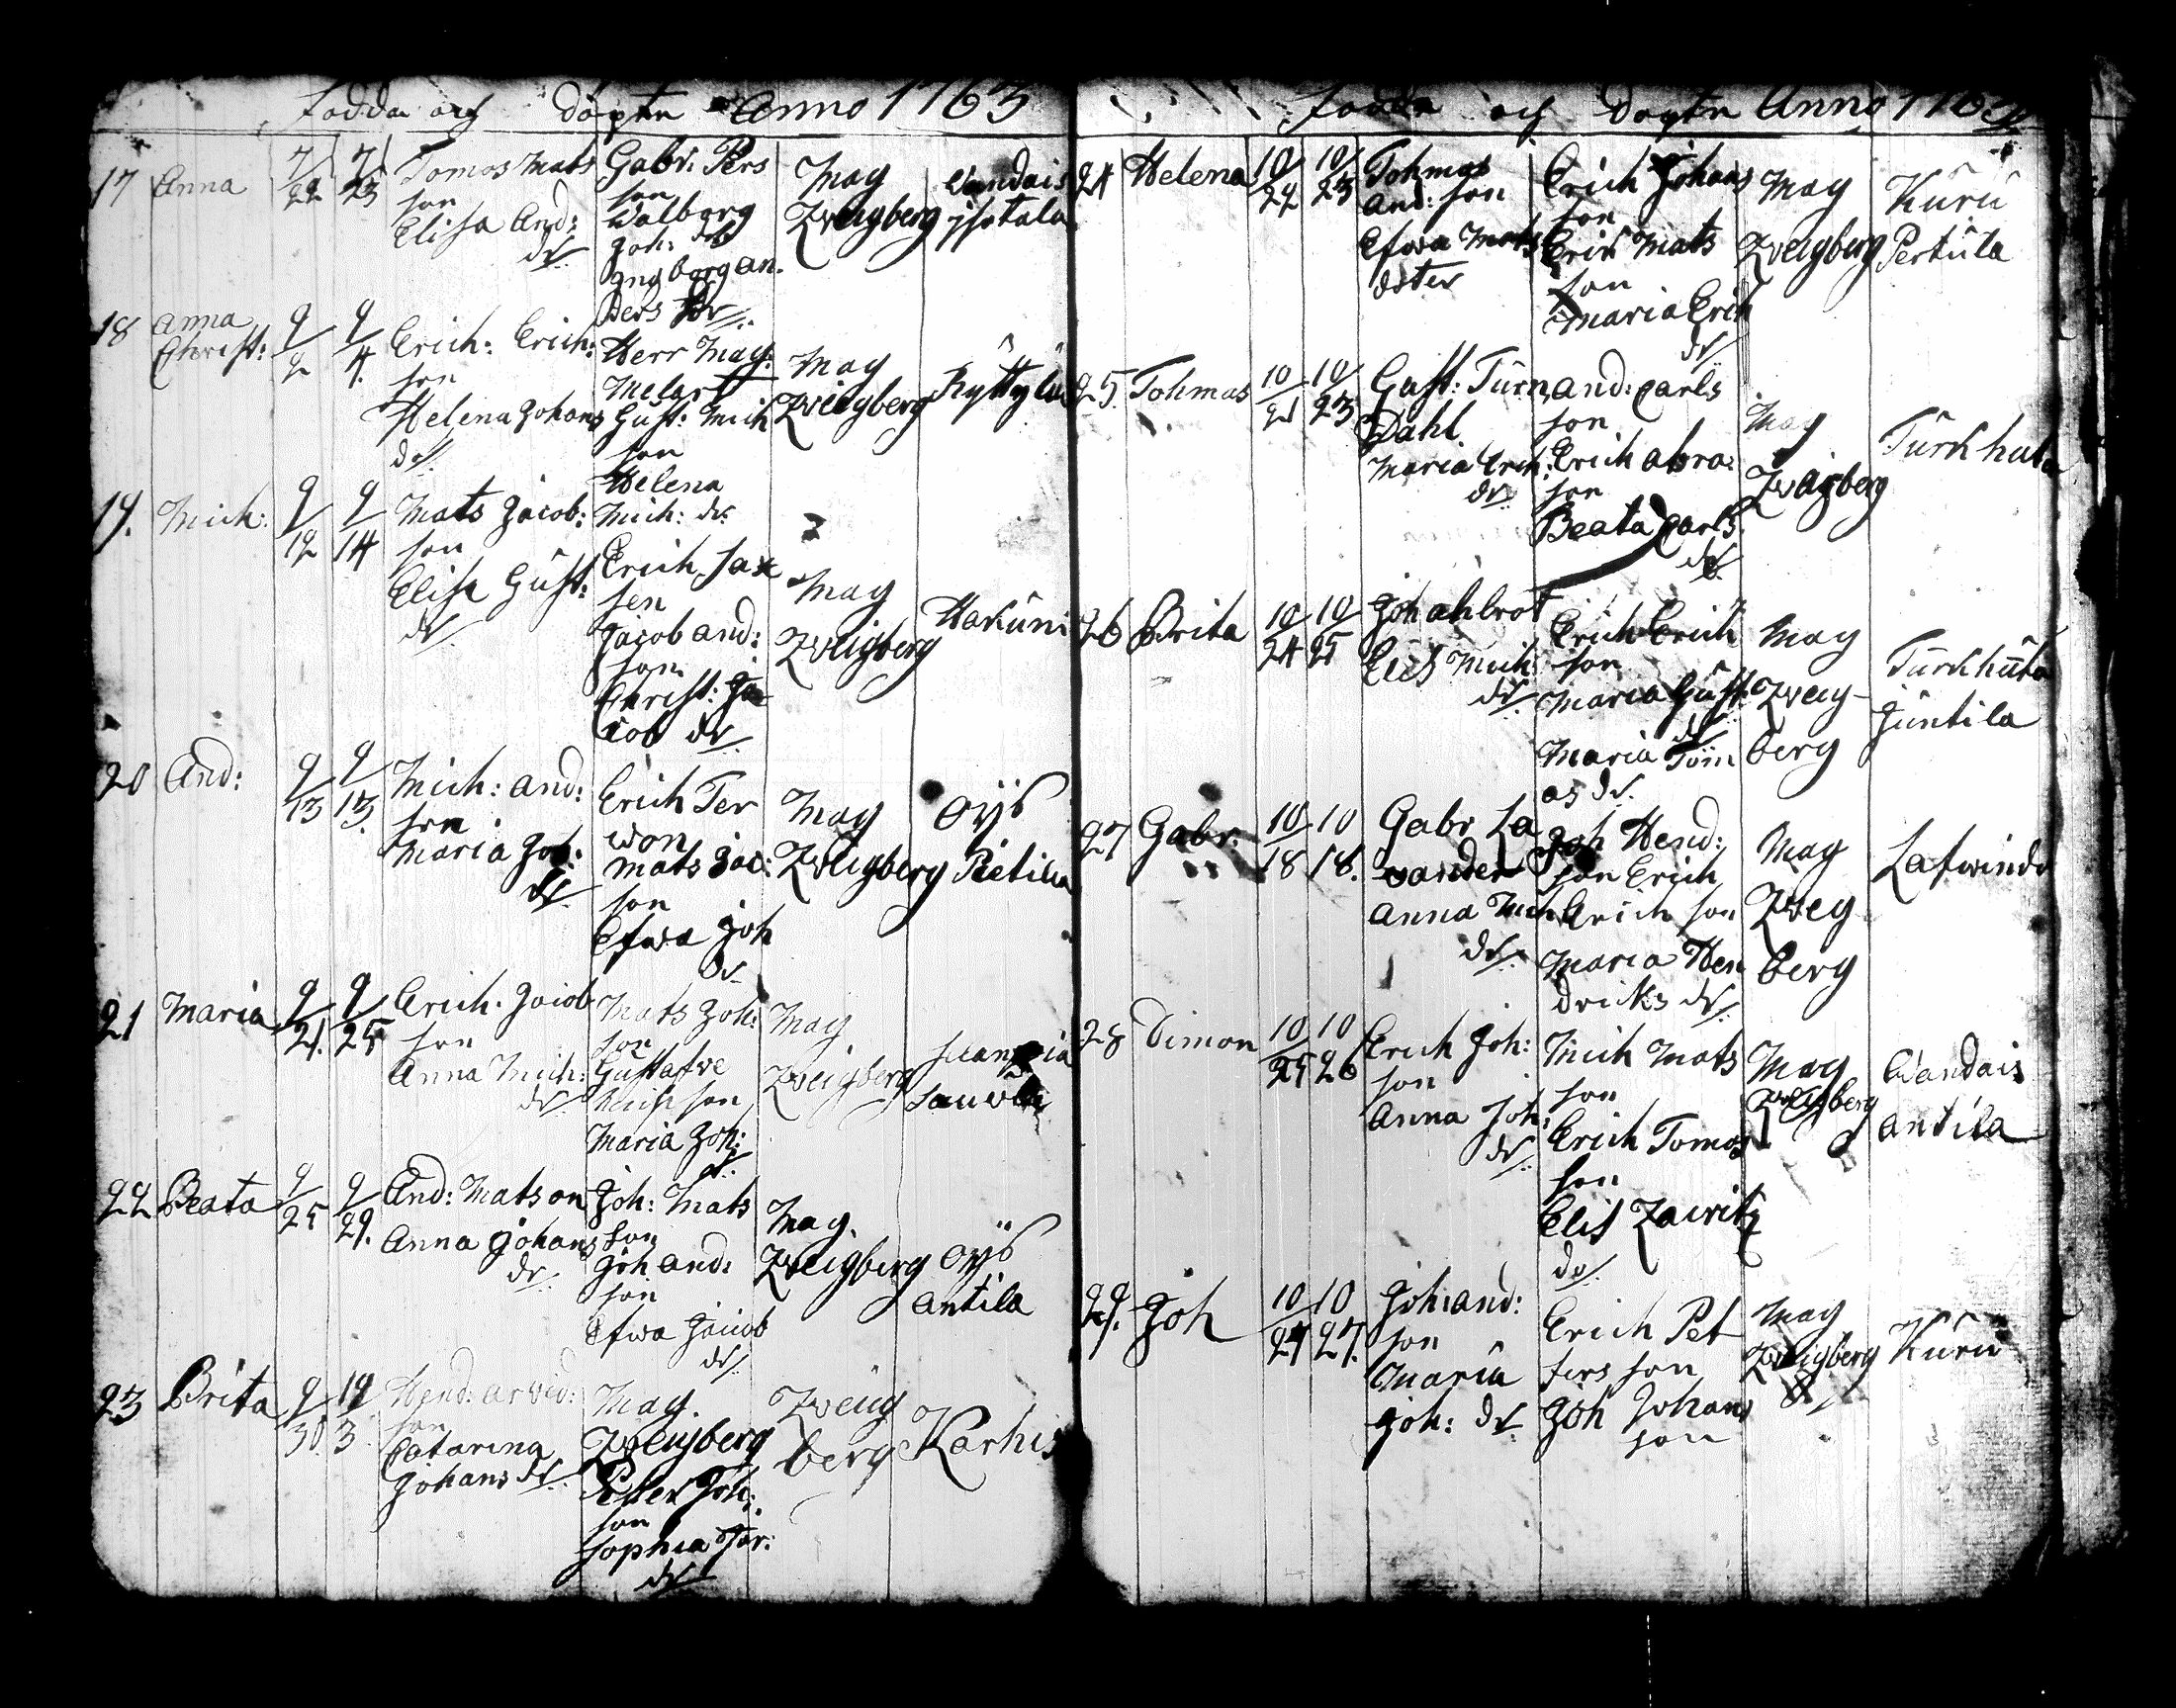 Födda och döpte Anno 1763
17 Anna 7/22 7/23 Tomos Mats Gabr: Pers Mag Wandais
son son Zweigberg
Elisa And: Walborg
dr. Joh: dr
Ingborg An
ders dr
18 Anna 9/2 9/4. Erich: Erich: Herr Mag: Mag Ryttylä
Christ: son Melart Zweigberg
Helena Johans Gust: Mich
dr. son
Helena
Mich: dr.
19. Mich: 9/12 9/14 Mats Jacob: Erich Sax Mag Hakuni
son sen Zweigberg
Elisa Gust: Jacob And:
dr son
Christ: Ja
cob dr
20 And: 9/13 9/13. Mich: And: Erich Ter Mag Oijs
son won Zweigberg Pietilä
Maria Joh: Mats Jac:
dr son
Efwa Joh
dr
21 Maria 9/21. 9/25 Erich Jacob Mats Joh: Mag
son son Zweigberg
Anna Mich: Gustafwe
dr. Mich son
Maria Joh:
dr.
22 Beata 9/25 9/29. And: Matson Joh: Mats Mag. Oijs
Anna Johans son Zweigberg Antila
dr. Joh And:
son
Efwa Jacob
dr.
23 Brita 9/30 3 Hend: Arvid: Mag. Zweig Karhis
son Zweigberg berg
Catarina Petter Joh:
Johans dr. son
Sophia
dr
Födda och Döpte Anno
24 Helena 10/22 10/23 Tohmas Erich Johans Mag Kuru
And: son son Zweigberg Pertula
Efwa Mats Erik Mats
doter son
Maria Erich
dr
25. Tohmas 10/21 10/23 Gust: Turn And: Carls Mag Turkhuta
Dahl son Zweigberg
Maria Erich: Erich Abra:
dr. son
Beata Carls
dr
26 Brita 10/24 10/25 Joh Ahlrot Erich Erich Mag Turkhuta
Elis Mich: son Zweig- Juntila
dr. Maria Gust: berg
dr
Maria Tom
as dr.
27 Gabr. 10/18 10/18. Gabr La Joh Hend: Mag Lafwindo
vander son Erich Zweg
Anna Mich Erich son berg
dr. Maria Hen
dricks dr
28 Simon 10/25 10/26 Erich Joh: Mich Mats Mag Wandais
son son Zweigberg Antila
Anna Joh: Erich Tomos
dr. son
Elis Lawritz
dr.
29. Joh 10/27 10/27. Joh: And: Erich Pet Mag Kuru
son ters son Zweigberg
Maria Joh Johans
Joh: dr. son